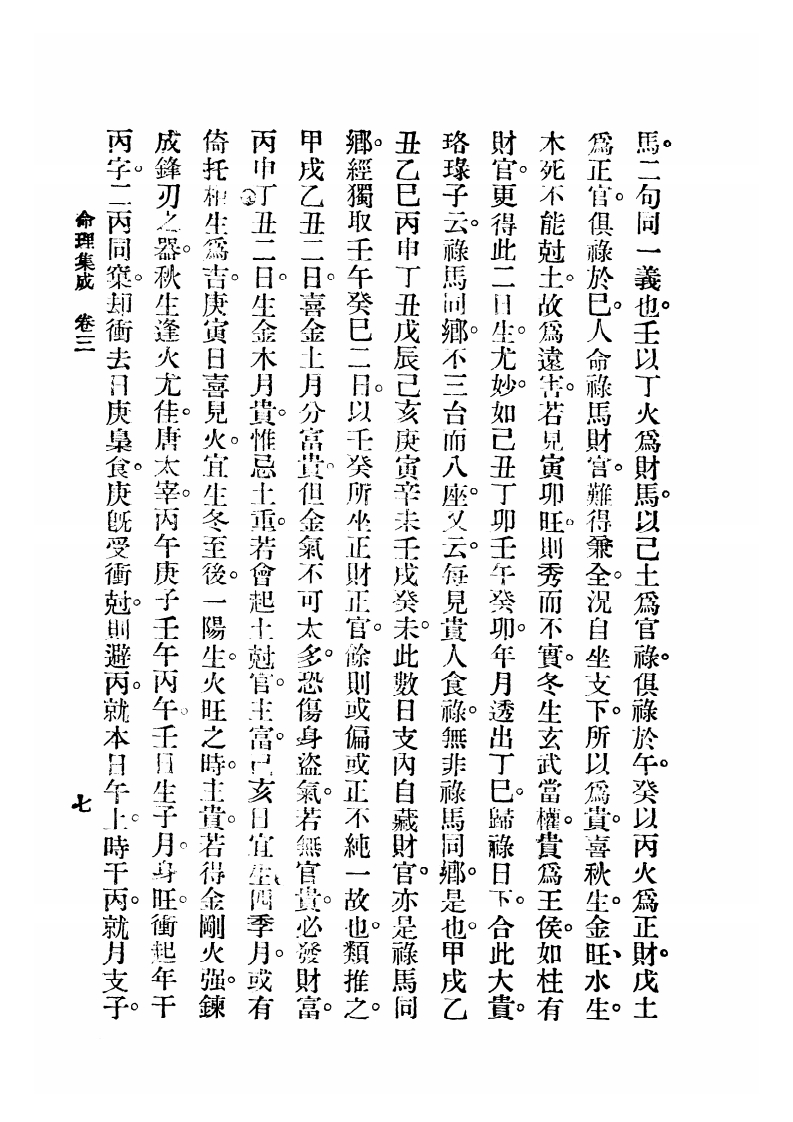 馬。二句同一義也。壬以丁火爲財馬。以己土爲官祿。俱祿於午。癸以丙火爲正財。戊土
爲正官。俱祿於巳。人命祿馬財官。難得兼全。況自坐支下。所以爲貴。喜秋生。金旺、水生。
木死不能尅土。故爲遠害。若見寅卯旺。則秀而不實。冬生玄武當權。貴爲王侯。如柱有
財官。更得此二日生。尤妙。如己丑丁卯壬午癸卯。年月透出丁巳。歸祿日下。合此大貴。
珞琭子云。祿馬同鄉。不三台而八座。又云。每見貴人食祿。無非祿馬同鄉。是也。甲戌乙
丑乙巳丙申丁丑戊辰己亥庚寅辛未壬戌癸未。此數日支內自藏財官。亦是祿馬同
鄉。經獨取壬午癸巳二日。以壬癸所坐正財正官。餘則或偏或正不純一故也。類推之。
甲戌乙丑二日。喜金土月分富貴。但金氣不可太多。恐傷身盜氣。若無官貴。必發財富。
丙申丁丑二日。生金木月貴。惟忌土重。若會起土尅官。主富。己亥日宜生四季月。或有
倚托相生爲吉。庚寅日喜見火。宜生冬至後。一陽生。火旺之時。主貴。若得金剛火强。鍊
成鋒刃之器。秋生逢火尤佳。唐太宰。丙午庚子壬午丙午。壬日生子月。身旺。衝起年干
丙字。二丙同窠。却衝去日庚梟食。庚旣受衝尅。則避丙。就本日午上。時干丙。就月支子。
命理集成 卷三
七